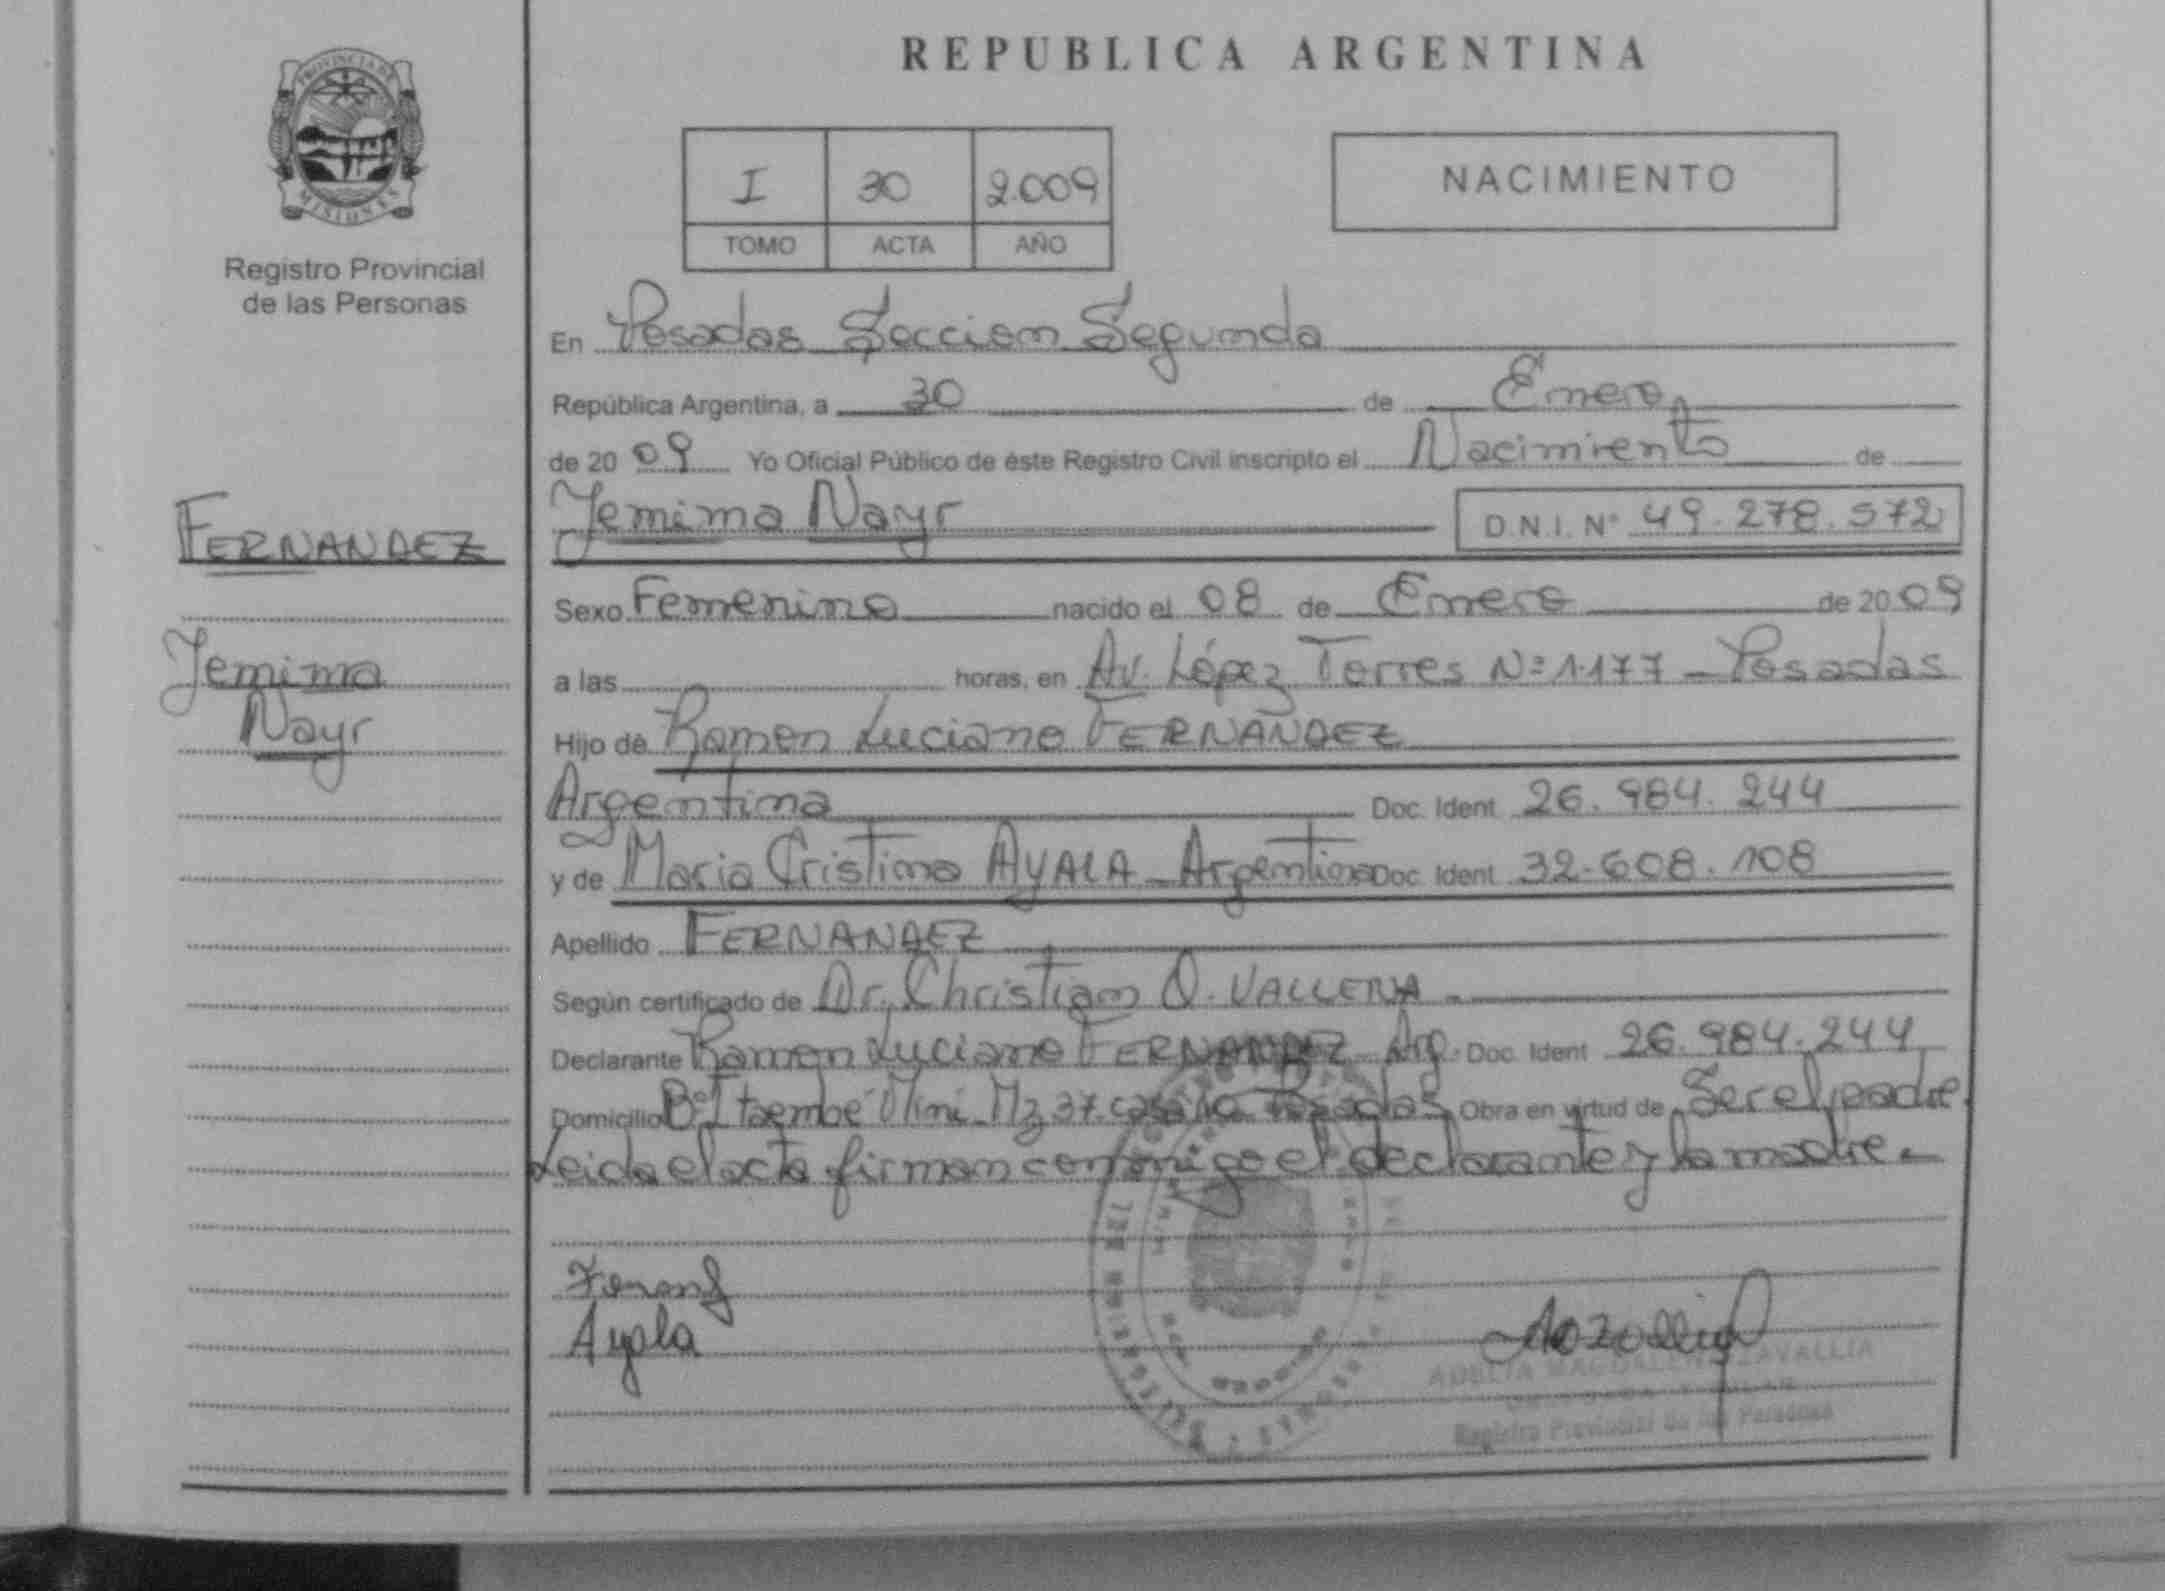 REPUBLICA ARGENTINA
PROVINCIA DE
MISIONES
Registro Provincial
de las Personas
I 30 2.009
TOMO ACTA AÑO
NACIMIENTO
En Posadas Seccion Segunda
República Argentina, a 30 de Enero
de 20 09 Yo Oficial Público de éste Registro Civil inscripto el Nacimiento de
Jemima Nayr D.N.I. Nº 49.278.572
FERNANDEZ
Jemima
Nayr
Sexo Femenino nacido el 08 de Enero de 20 09
a las horas, en Av. López Torres Nº 1.177 - Posadas
Hijo de Ramon Luciano FERNANDEZ
Argentina Doc. Ident 26.984.244
y de Maria Cristina AYALA - Argentina Doc. Ident 32.608.108
Apellido FERNANDEZ
Según certificado de Dr. Christian O.
Declarante Ramon Luciano FERNANDEZ Arg. Doc. Ident 26.984.244
Domicilio Bº Itaembé Miní Mz 37 casa Posadas Obra en virtud de Ser el padre.
Leida el acta firman conmigo el declarante y la madre.
Ayala
ADELIA MAGDALENA ZAVALLIA
Registro Provincial de las Personas